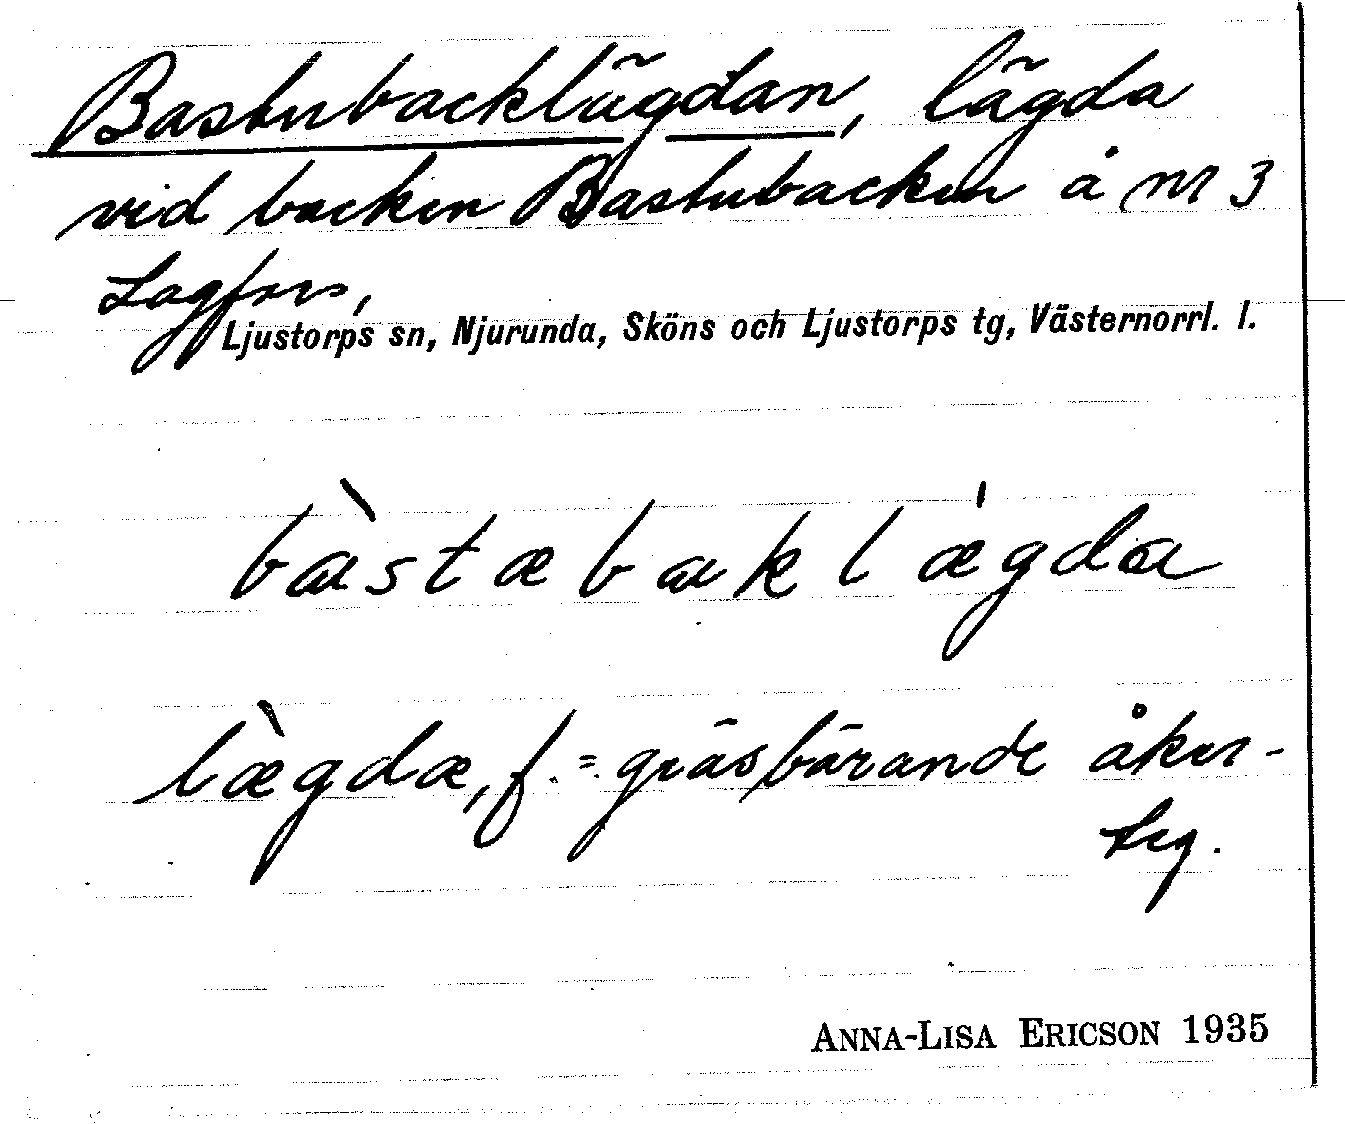 Bastubacklägdan, lägda
vid backen Bastubacken å nr 3
Lagfors,
Ljustorps sn, Njurunda, Sköns och Ljustorps tg, Västernorrl. l.
bàstæbaklægda
læ̀gdæ, f. = gräsbärande åker-
teg.
ANNA-LISA ERICSON 1935